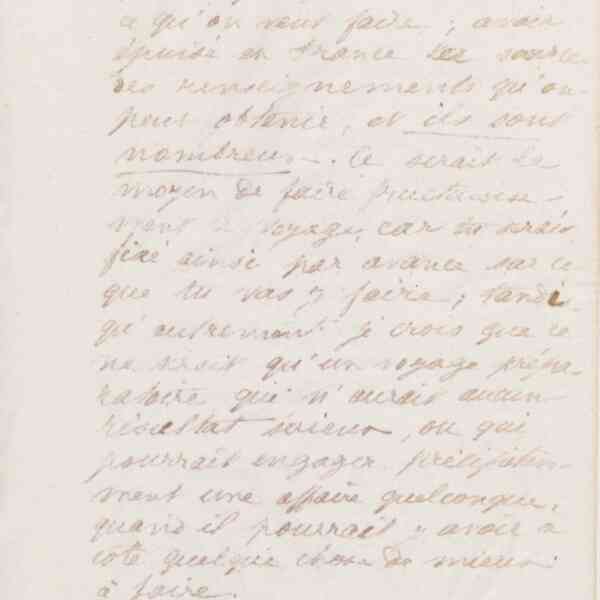 ce qu'on veut faire ; avoir
épuisé en France les sources
des renseignements qu'on
peut obtenir, et ils sont
nombreux. Ce serait le
moyen de faire fructueuse-
ment le voyage, car tu serais
fixé ainsi par avance sur ce
que tu vas y faire ; tandis
qu'autrement je crois que ce
ne serait qu'un voyage prépa-
ratoire qui n'aurait aucun
résultat sérieux, ou qui
pourrait engager précipitam-
ment une affaire quelconque,
quand il pourrait y avoir à
côté quelque chose de mieux
à faire.